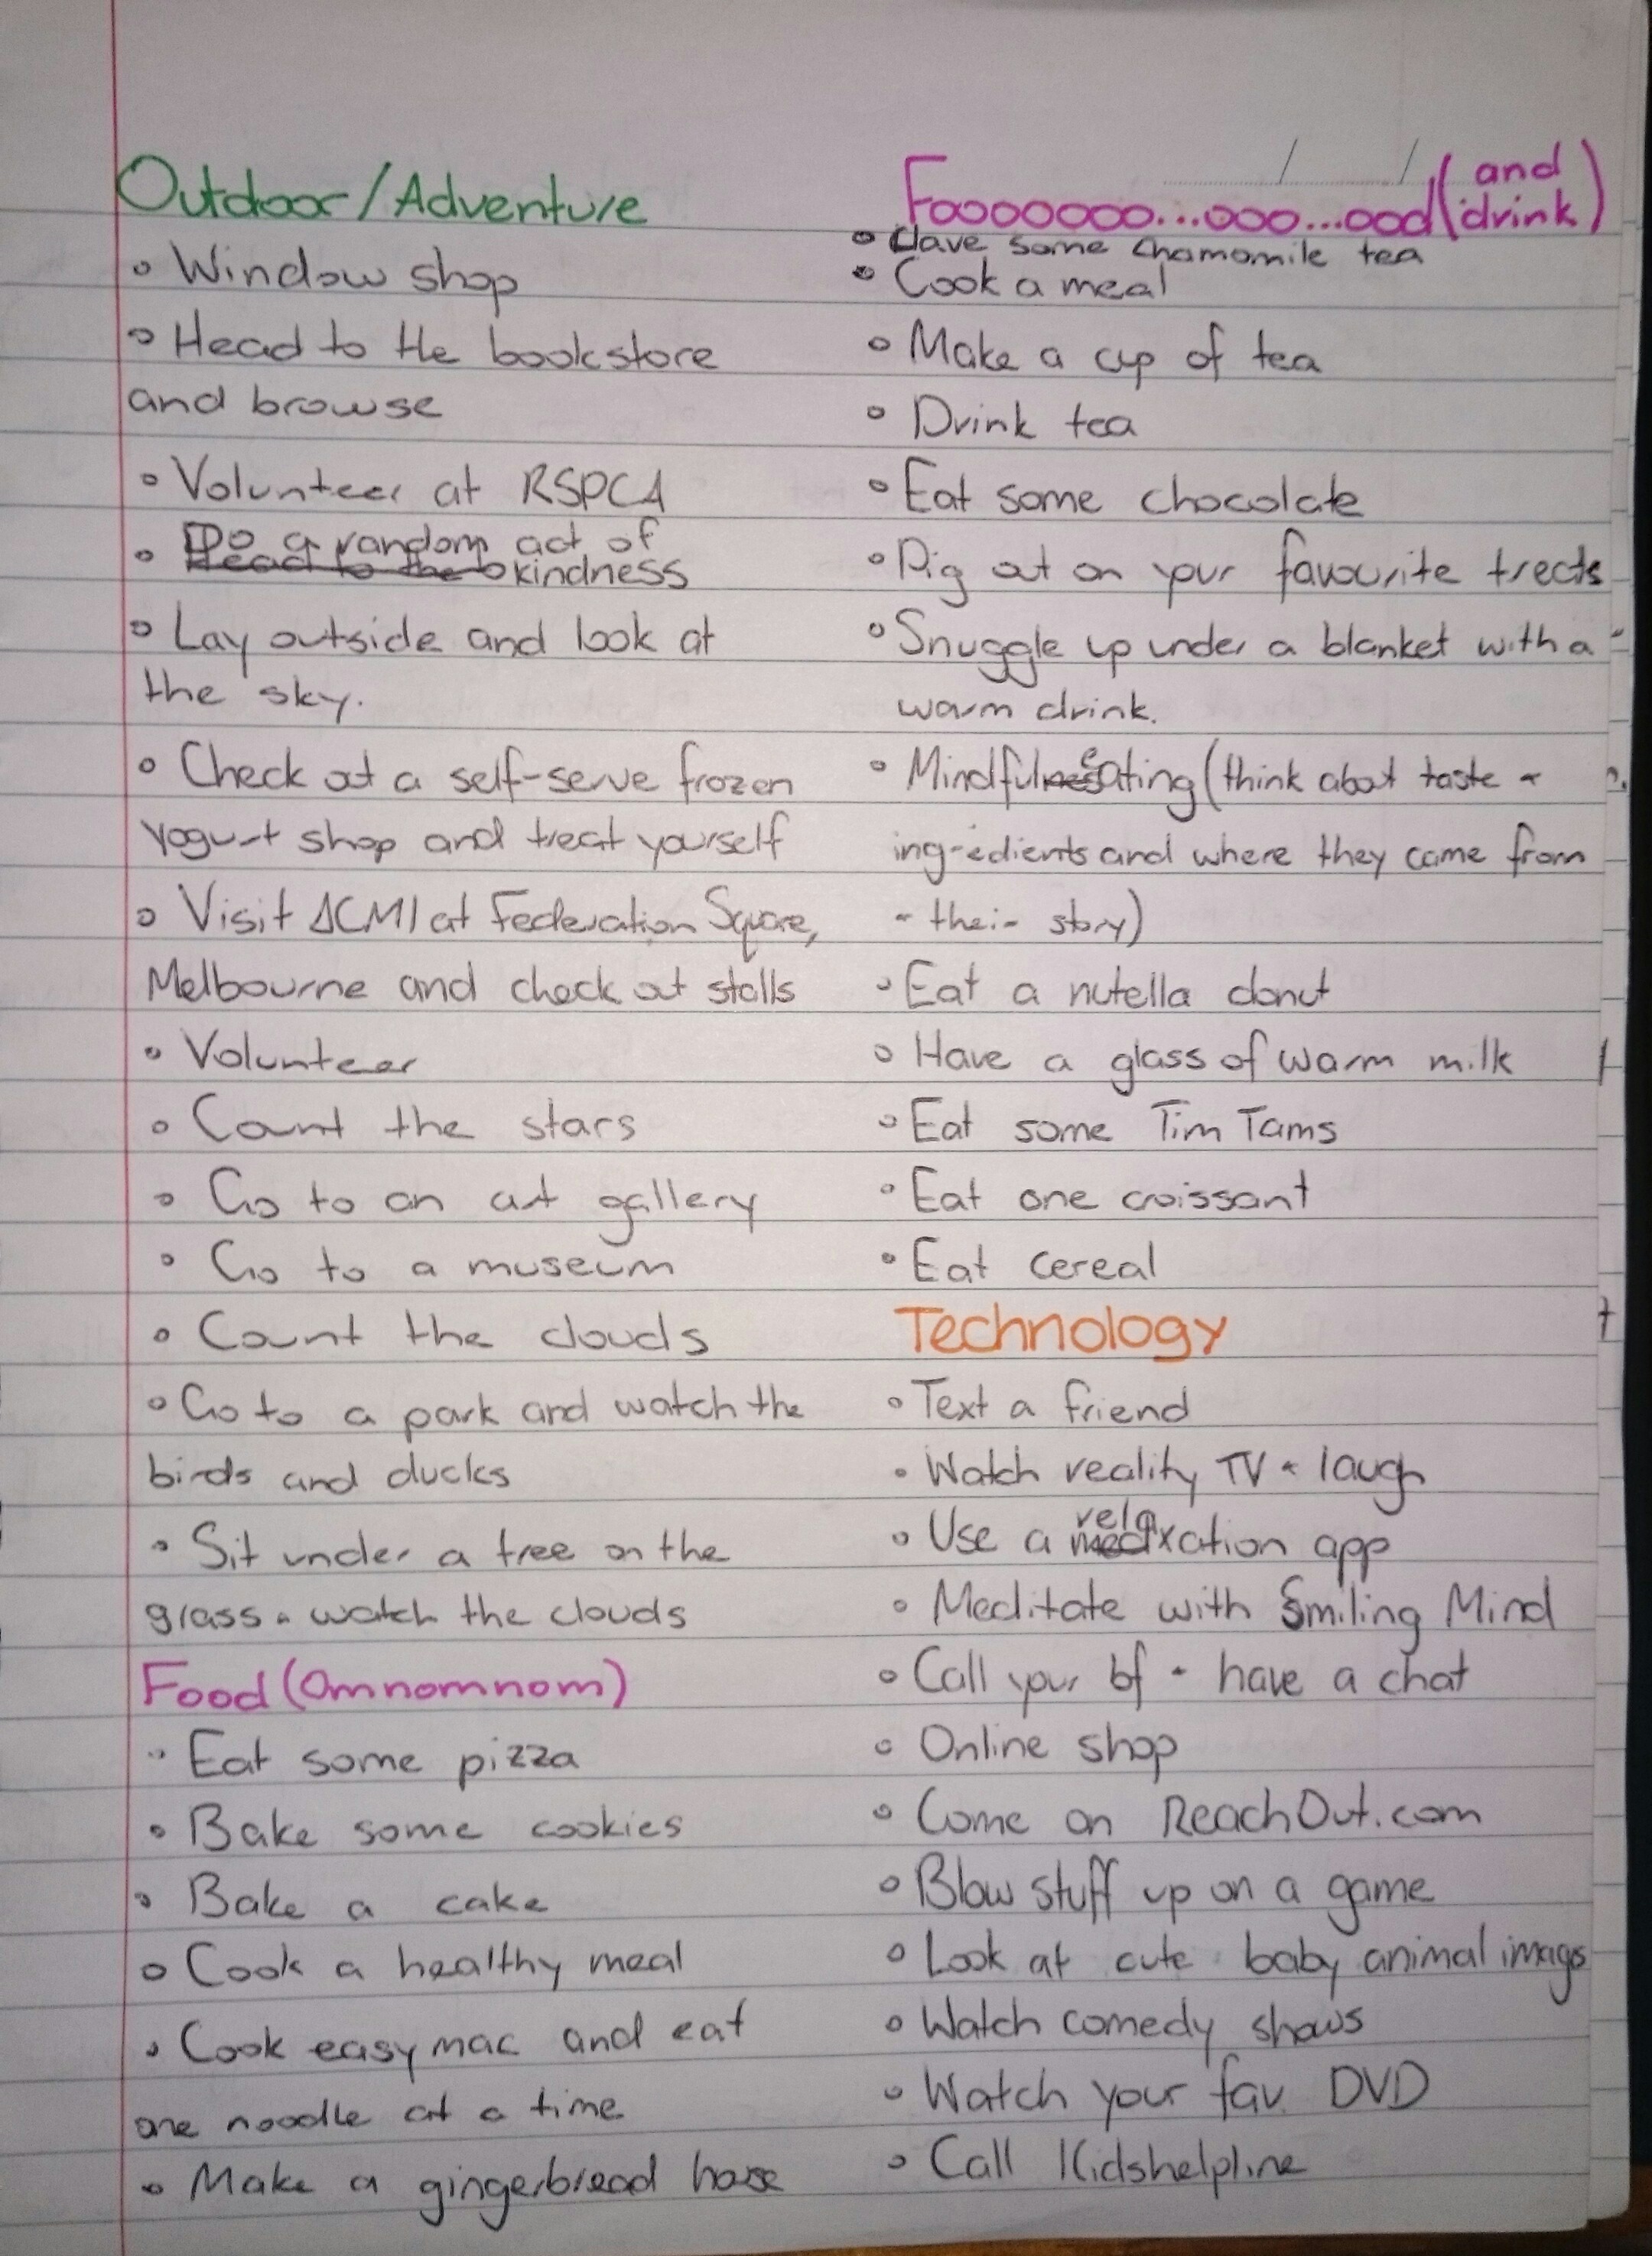 Outdoor/Adventure
• Window shop
• Head to the bookstore
and browse
• Volunteer at RSPCA
• Do a random act of
kindness
• Lay outside and look at
the sky.
• Check out a self-serve frozen
yogurt shop and treat yourself
• Visit ACMI at Federation Square,
Melbourne and check out stalls
• Volunteer
• Count the stars
• Go to an art gallery
• Go to a museum
• Count the clouds
• Go to a park and watch the
birds and ducks
• Sit under a tree on the
grass & watch the clouds
Food (Omnomnom)
• Eat some pizza
• Bake some cookies
• Bake a cake
• Cook a healthy meal
• Cook easy mac and eat
one noodle at a time
• Make a gingerbread house
Fooooooo...ooo...ood (and
drink)
• Have some chamomile tea
• Cook a meal
• Make a cup of tea
• Drink tea
• Eat some chocolate
• Pig out on your favourite treats
• Snuggle up under a blanket with a
warm drink.
• Mindful eating (think about taste &
ingredients and where they came from
& their story)
• Eat a nutella donut
• Have a glass of warm milk
• Eat some Tim Tams
• Eat one croissant
• Eat cereal
Technology
• Text a friend
• Watch reality TV & laugh
• Use a relaxation app
• Meditate with Smiling Mind
• Call your bf & have a chat
• Online shop
• Come on ReachOut.com
• Blow stuff up on a game
• Look at cute baby animal images
• Watch comedy shows
• Watch your fav DVD
• Call Kidshelpline